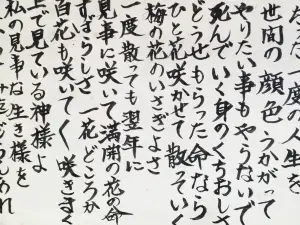 たった一度の人生を
世間の顔色うかがって
やりたい事もやらないで
死んでいく身のくちおしさ
どうせもらった命なら
ひと花咲かせて散っていく
梅の花のいさぎよさ
一度散っても翌年に
見事に咲いて満開の花の命
すばらしさ一花どころか
百花も咲いてく咲きまく
上で見ている神様よ
私の見事な生き様を